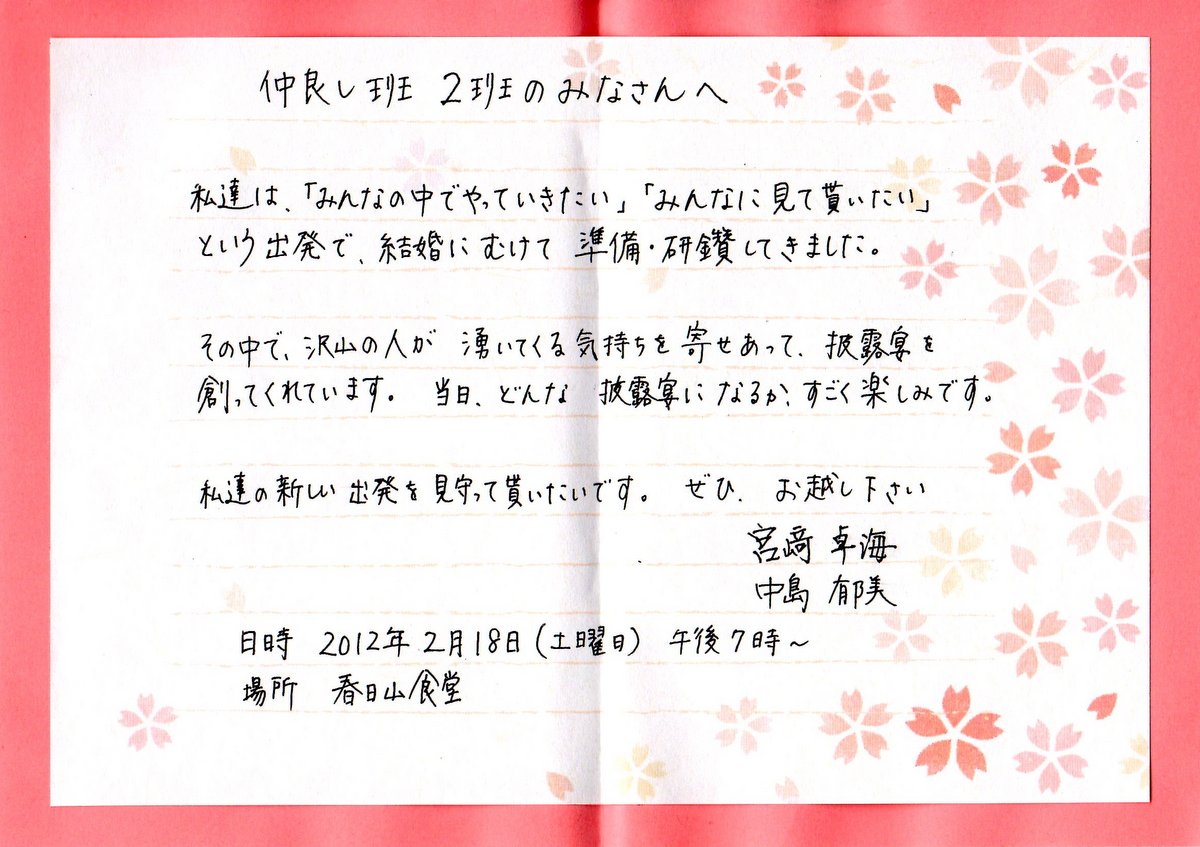 仲良し班 2班のみなさんへ
私達は、「みんなの中でやっていきたい」「みんなに見て貰いたい」
という出発で、結婚にむけて 準備・研鑽してきました。
その中で、沢山の人が 湧いてくる気持ちを寄せあって、披露宴を
創ってくれています。 当日、どんな 披露宴になるか、すごく楽しみです。
私達の新しい出発を見守って貰いたいです。 ぜひ、お越し下さい
宮﨑 卓海
中島 郁美
日時 2012年2月18日(土曜日) 午後7時〜
場所 春日山食堂